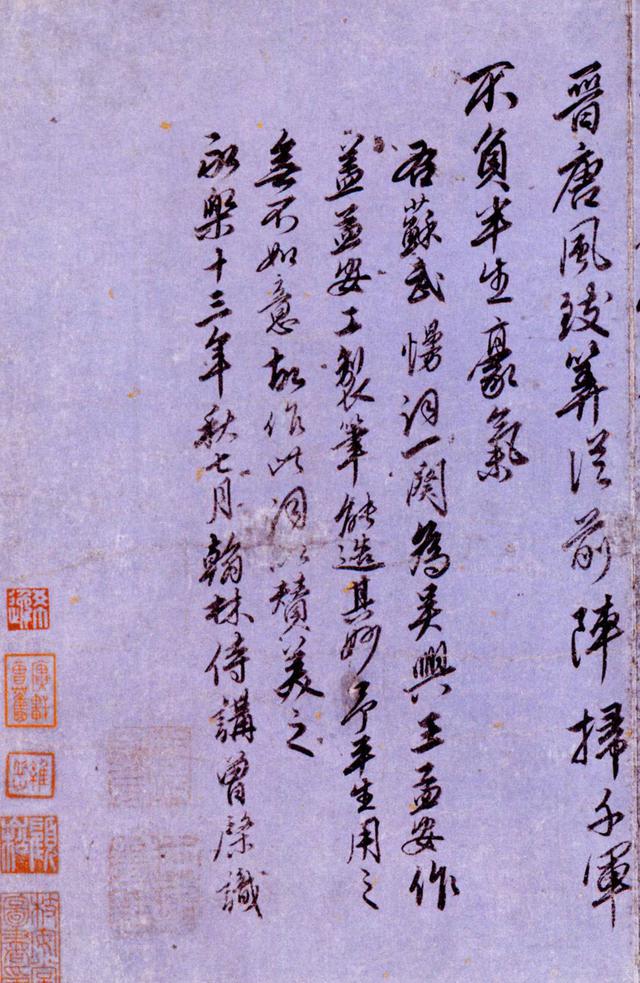 晉唐風致筭從前陣掃千軍
不負半生豪氣
右蘇武慢詞一闋為吴興王孟安作
蓋孟安工製筆能造其妙予平生用之
無不如意故作此詞以賛美之
永樂十三年秋七月翰林侍講曾棨識